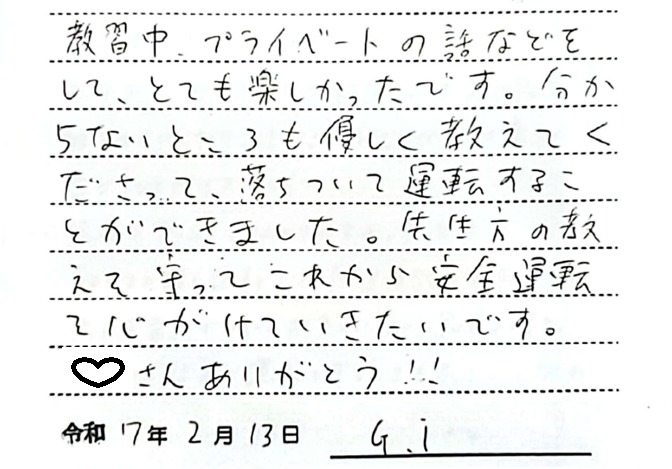 教習中、プライベートの話などを
して、とても楽しかったです。分か
らないところも優しく教えてく
ださって、落ちついて運転するこ
とができました。先生方の教
えを守ってこれから安全運転
を心がけていきたいです。
♡さんありがとう!!!
令和 7年 2月 13日 G.i